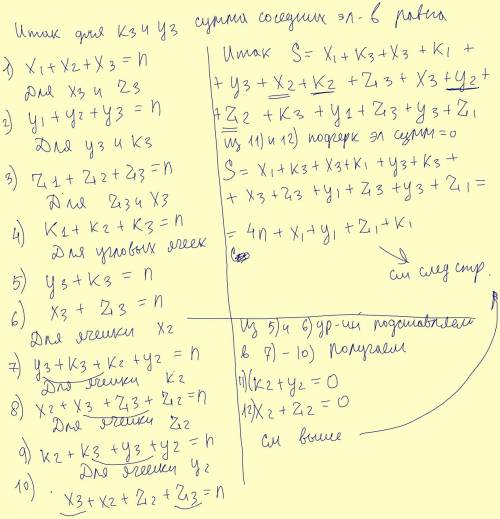 Итак для k3 и y3 сумма соседних эл-в равна
1) x1 + x2 + x3 = n
Для x3 и z3
2) y1 + y2 + y3 = n
Для y3 и k3
3) z1 + z2 + z3 = n
Для z3 и x3
4) k1 + k2 + k3 = n
Для угловых ячеек
5) y3 + k3 = n
6) x3 + z3 = n
Для ячейки x2
7) y3 + k3 + k2 + y2 = n
Для ячейки k2
8) x2 + x3 + z3 + z2 = n
Для ячейки z2
9) k2 + k3 + y3 + y2 = n
Для ячейки y2
10) x3 + x2 + z2 + z3 = n
Итак S = x1 + k3 + x3 + k1 +
+ y3 + x2 + k2 + z3 + x3 + y2 +
+ z2 + k3 + y1 + z3 + y3 + z1
Из 11) и 12) подчерк эл сумм = 0
S = x1 + k3 + x3 + k1 + y3 + k3 +
+ x3 + z3 + y1 + z3 + y3 + z1 =
= 4n + x1 + y1 + z1 + k1
см след стр.
Из 5) и 6) ур-ий подставляем
в 7) – 10) Получаем
11) k2 + y2 = 0
12) x2 + z2 = 0
см выше